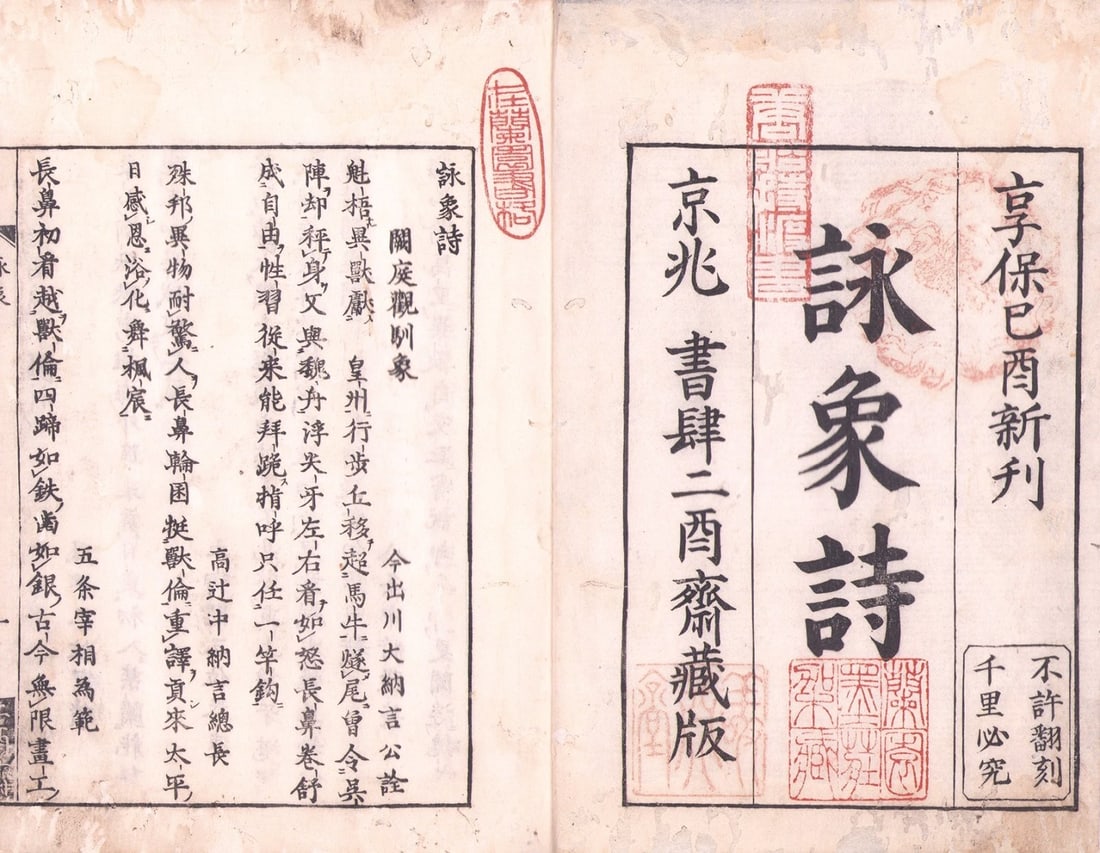 享保己酉新刊
不許翻刻
千里必究
詠象詩
京兆 書肆二酉齋藏版
詠象詩
闕庭觀馴象
今出川大納言公詮
魁梧異獸獻 皇州行步丘移超馬牛燧尾曾令吳
陣却秤身又與魏舟浮尖牙左右看如怒長鼻卷舒
成自由性習從来能拜跪指呼只任一竿鈎
高辻中納言總長
殊邦異物耐驚人長鼻輪囷挺獸倫重譯貢來太平
日感恩浴化舞楓宸
五条宰相為範
長鼻初看越獸倫四蹄如鉄歯如銀古今無限畫工